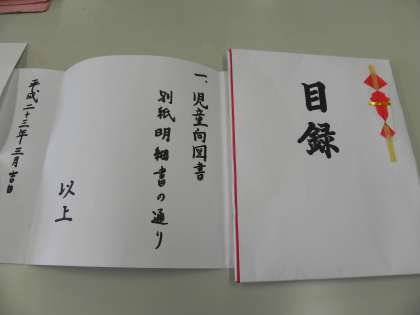 目録
一、児童向図書
別紙明細書の通り
以上
平成二十三年三月吉日